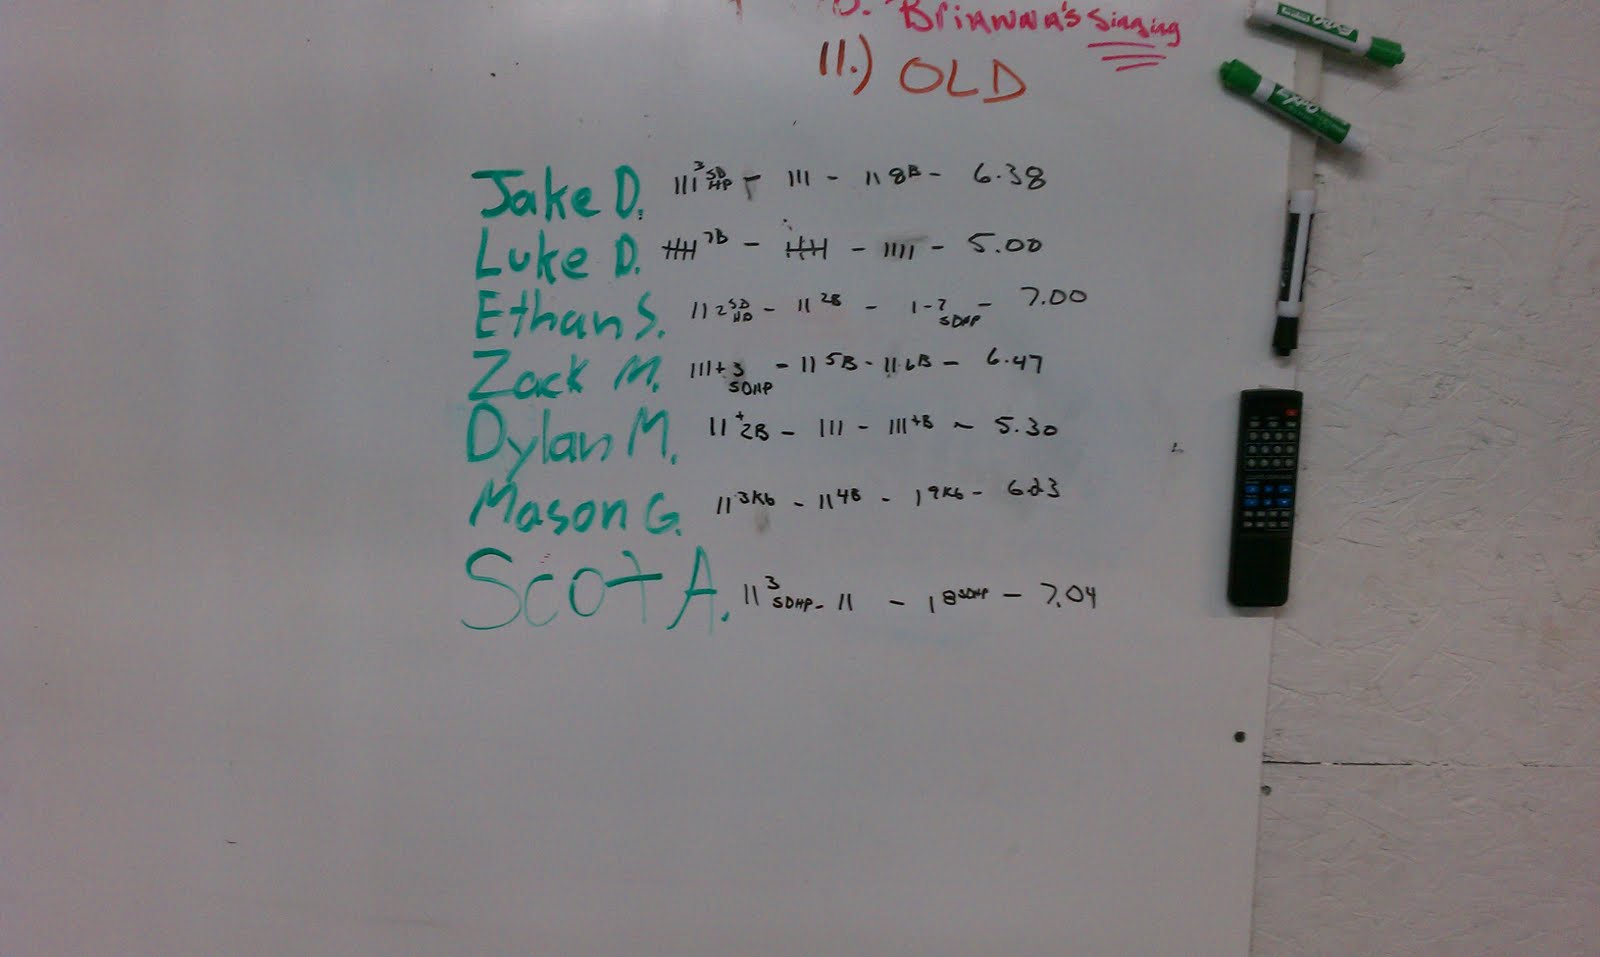 Brianna's Singing
11.) OLD
Jake D. 111 3 SDHP - 111 - 11 8B - 6.38
Luke D. 卌 7B - 卌 - 1111 - 5.00
Ethan S. 11 2 SDHP - 11 2B - 1 - 7 SDHP - 7.00
Zack M. 111 + 3 SDHP - 11 5B - 11 6B - 6.47
Dylan M. 11 + 2B - 111 - 111 +B - 5.30
Mason G. 11 3KB - 11 4B - 1 9KB - 6.23
Scot A. 11 3 SDHP - 11 - 1 8 SDHP - 7.04
EXPO